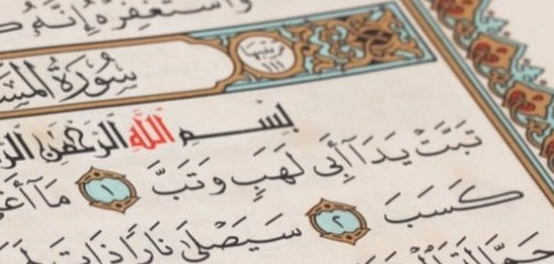 وَٱسْتَغْفِرْهُ إِنَّهُۥ
ترتيبها ١١١ سُورَةُ المَسَ
بِسْمِ اللَّهِ الرَّحْمَٰنِ الرَّ
تَبَّتْ يَدَآ أَبِى لَهَبٍ وَتَبَّ ١ مَآ أَغْ
كَسَبَ ٢ سَيَصْلَىٰ نَارًا ذَاتَ لَ